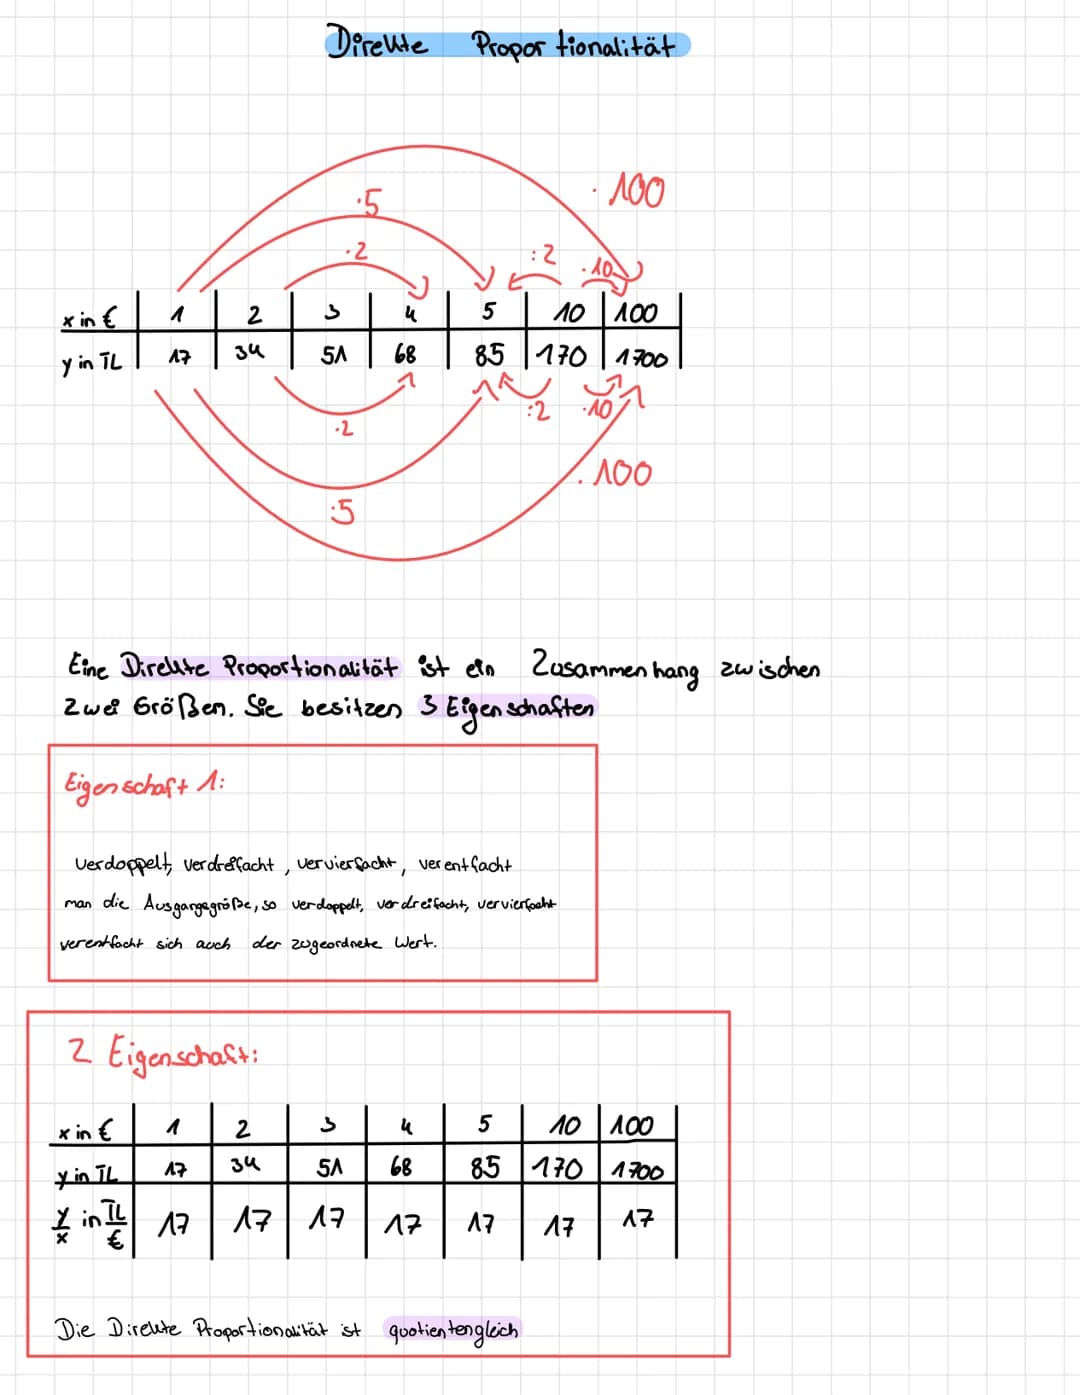 Direkte Proportionalität
· 100
·5
·2
:2
·10
x in € | 1 | 2 | 3 | 4 | 5 | 10 | 100
y in TL | 17 | 34 | 51 | 68 | 85 | 170 | 1700
:2
·10
·2
· 100
·5
Eine Direkte Proportionalität ist ein Zusammenhang zwischen
zwei Größen. Sie besitzen 3 Eigenschaften
Eigenschaft 1:
verdoppelt, verdreifacht, vervierfacht, verentfacht
man die Ausgangsgröße, so verdoppelt, verdreifacht, vervierfacht
verentfacht sich auch der zugeordnete Wert.
2 Eigenschaft:
x in € | 1 | 2 | 3 | 4 | 5 | 10 | 100
y in TL | 17 | 34 | 51 | 68 | 85 | 170 | 1700
y/x in TL/€ | 17 | 17 | 17 | 17 | 17 | 17 | 17
Die Direkte Proportionalität ist quotientengleich